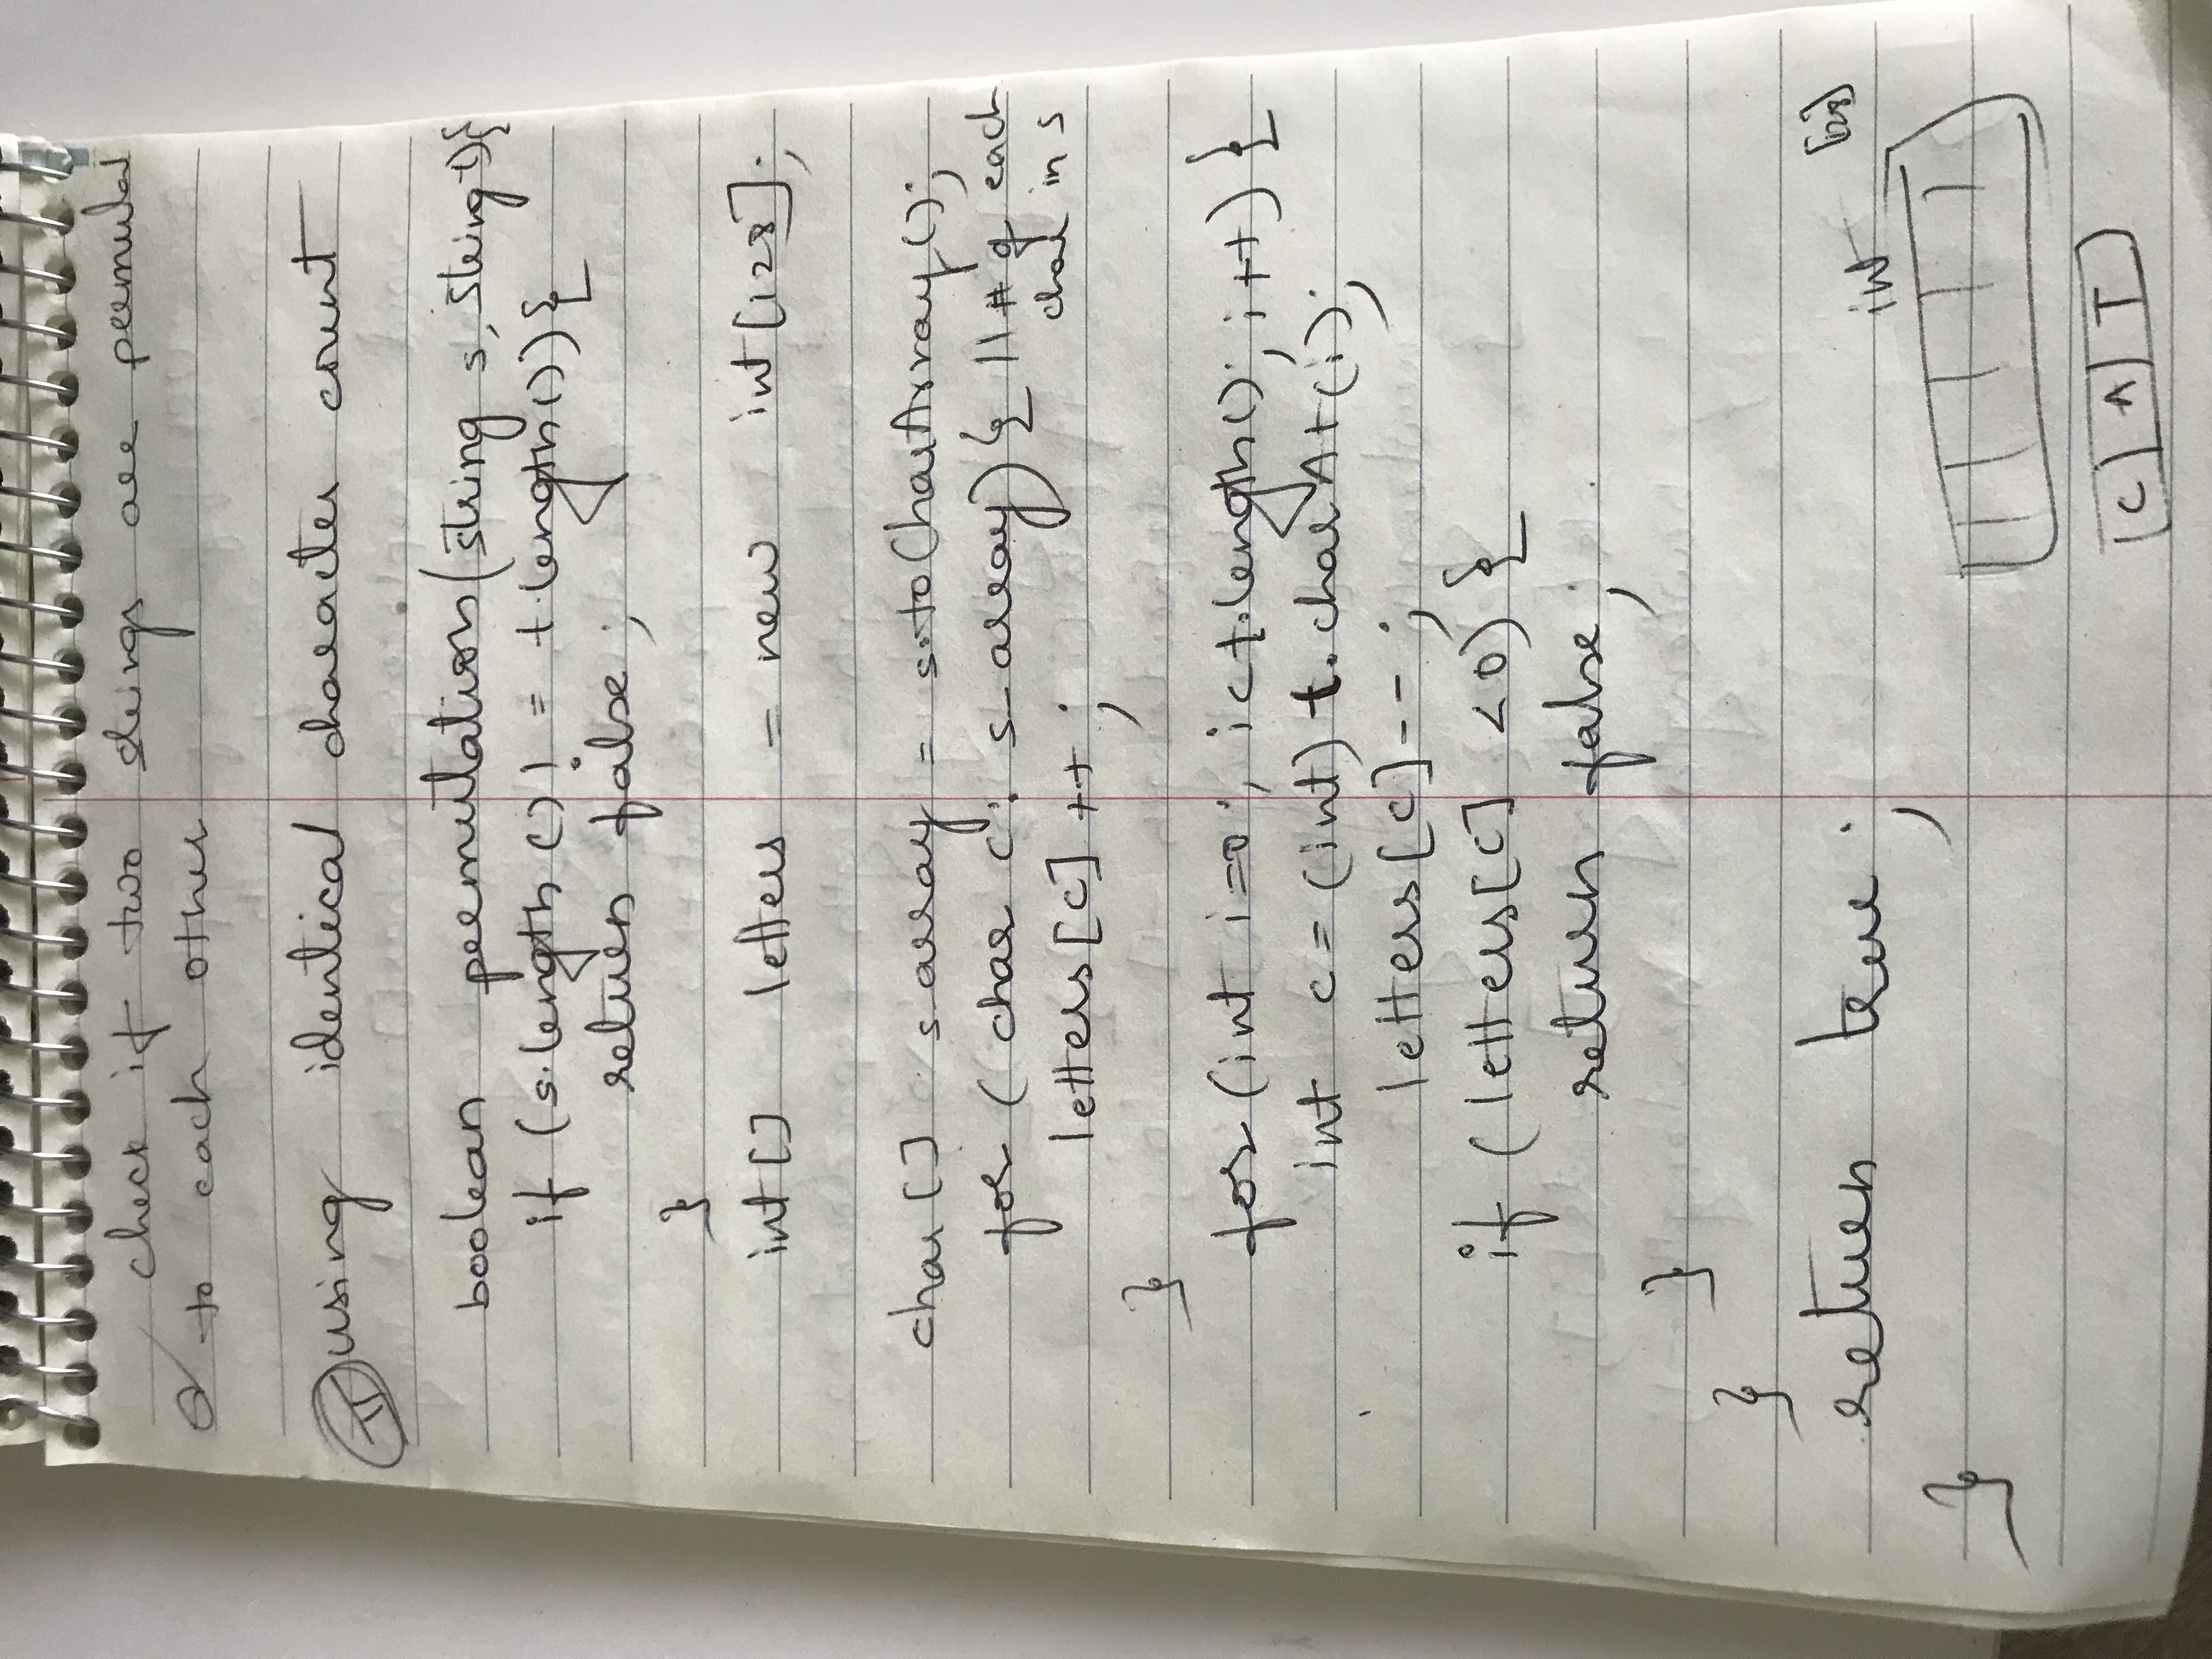 check if two strings are permutat
to each other
II using identical character count
boolean permutation(string s, String t){
if (s.length()! = t.length()){
return false;
}
int[] letters = new int[128];
char[] s array = s.toCharArray();
for ( char c: s_array) { // # of each
char in s
letters[c]++;
}
for (int i=0; i<t.length(); i++) {
int c = (int) t.charAt(i);
letters[c]--;
if ( letters[c] <0) {
return false;
}
}
return true;
}
int [128]
C A T